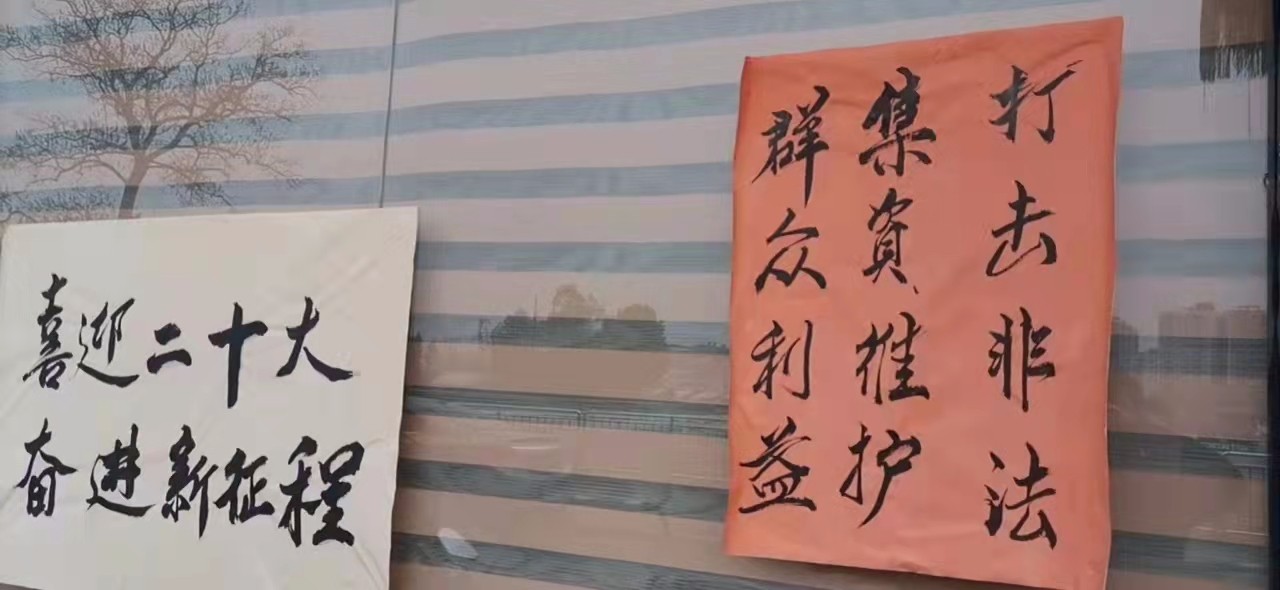 喜迎二十大
奋进新征程
打击非法
集资维护
群众利益